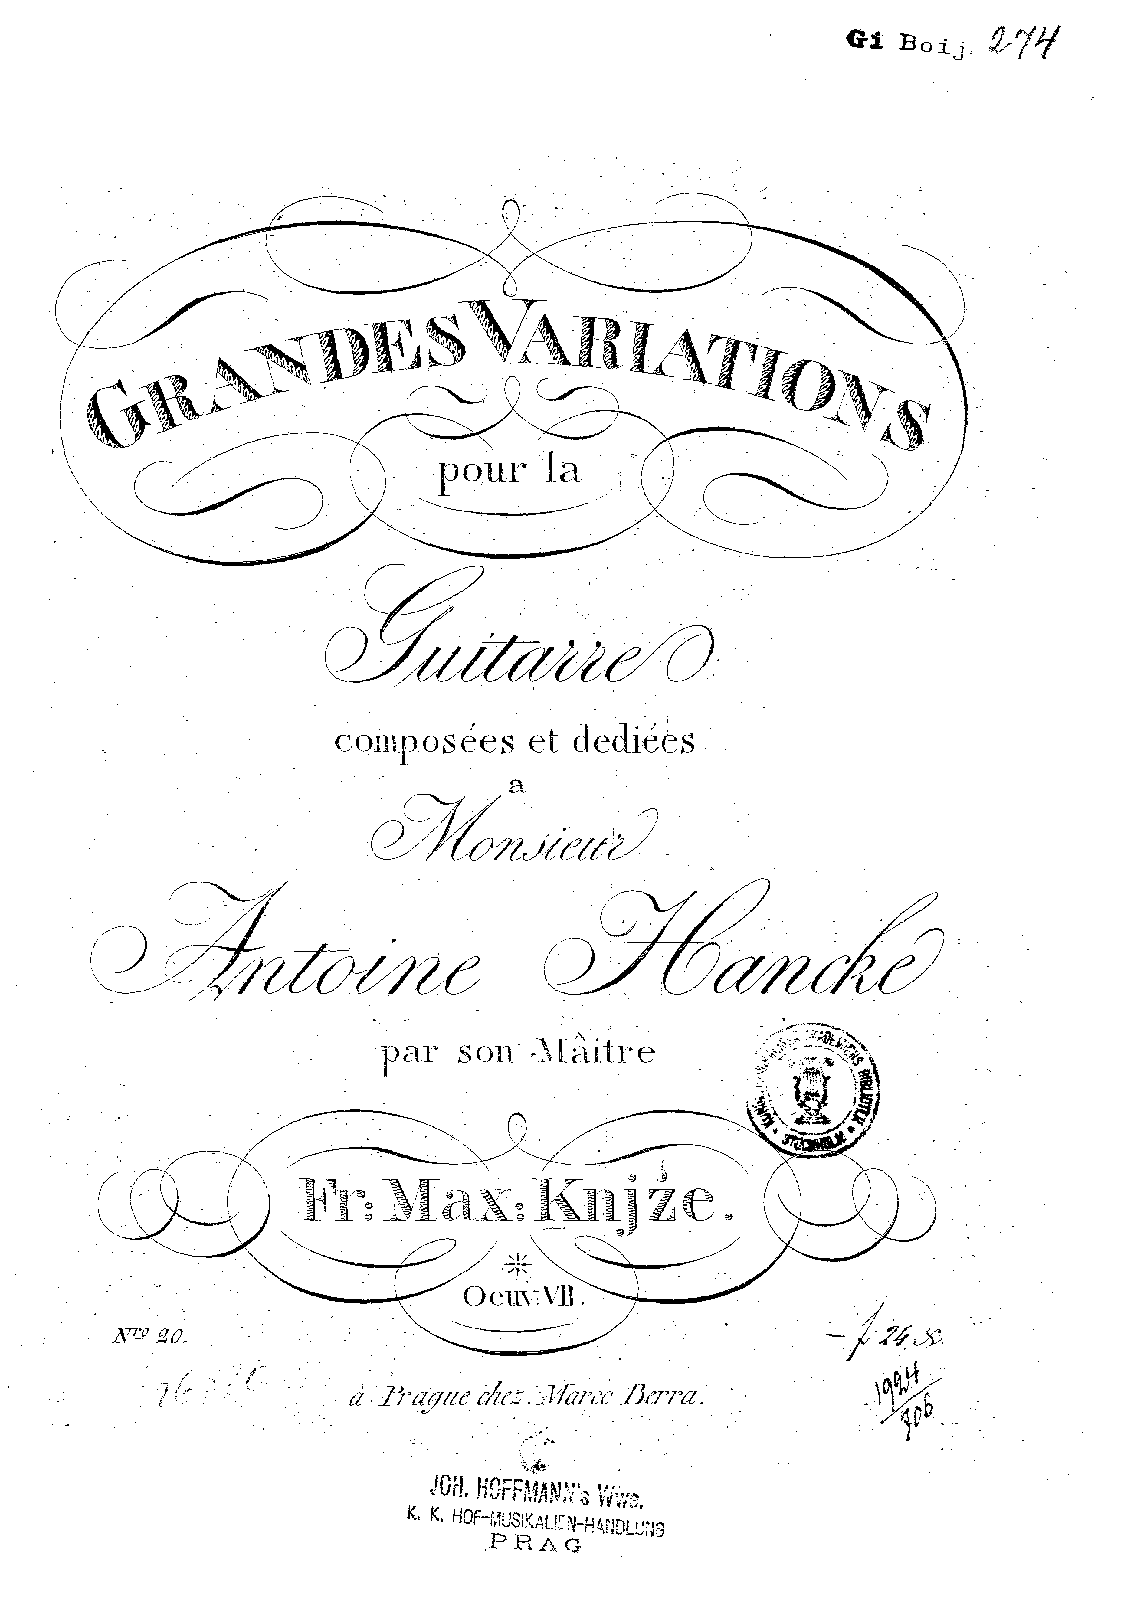 Gi Boij. 274
GRANDES VARIATIONS
pour la
Guitarre
composées et dediées
a
Monsieur
Antoine Hancke
par son Mâitre
Fr: Max: Knjže.
Oeuv: VII.
Nro 20.
à Prague chez Marco Berra.
1924
706
JOH. HOFFMANN's Wwe.
K. K. HOF-MUSIKALIEN-HANDLUNG
PRAG